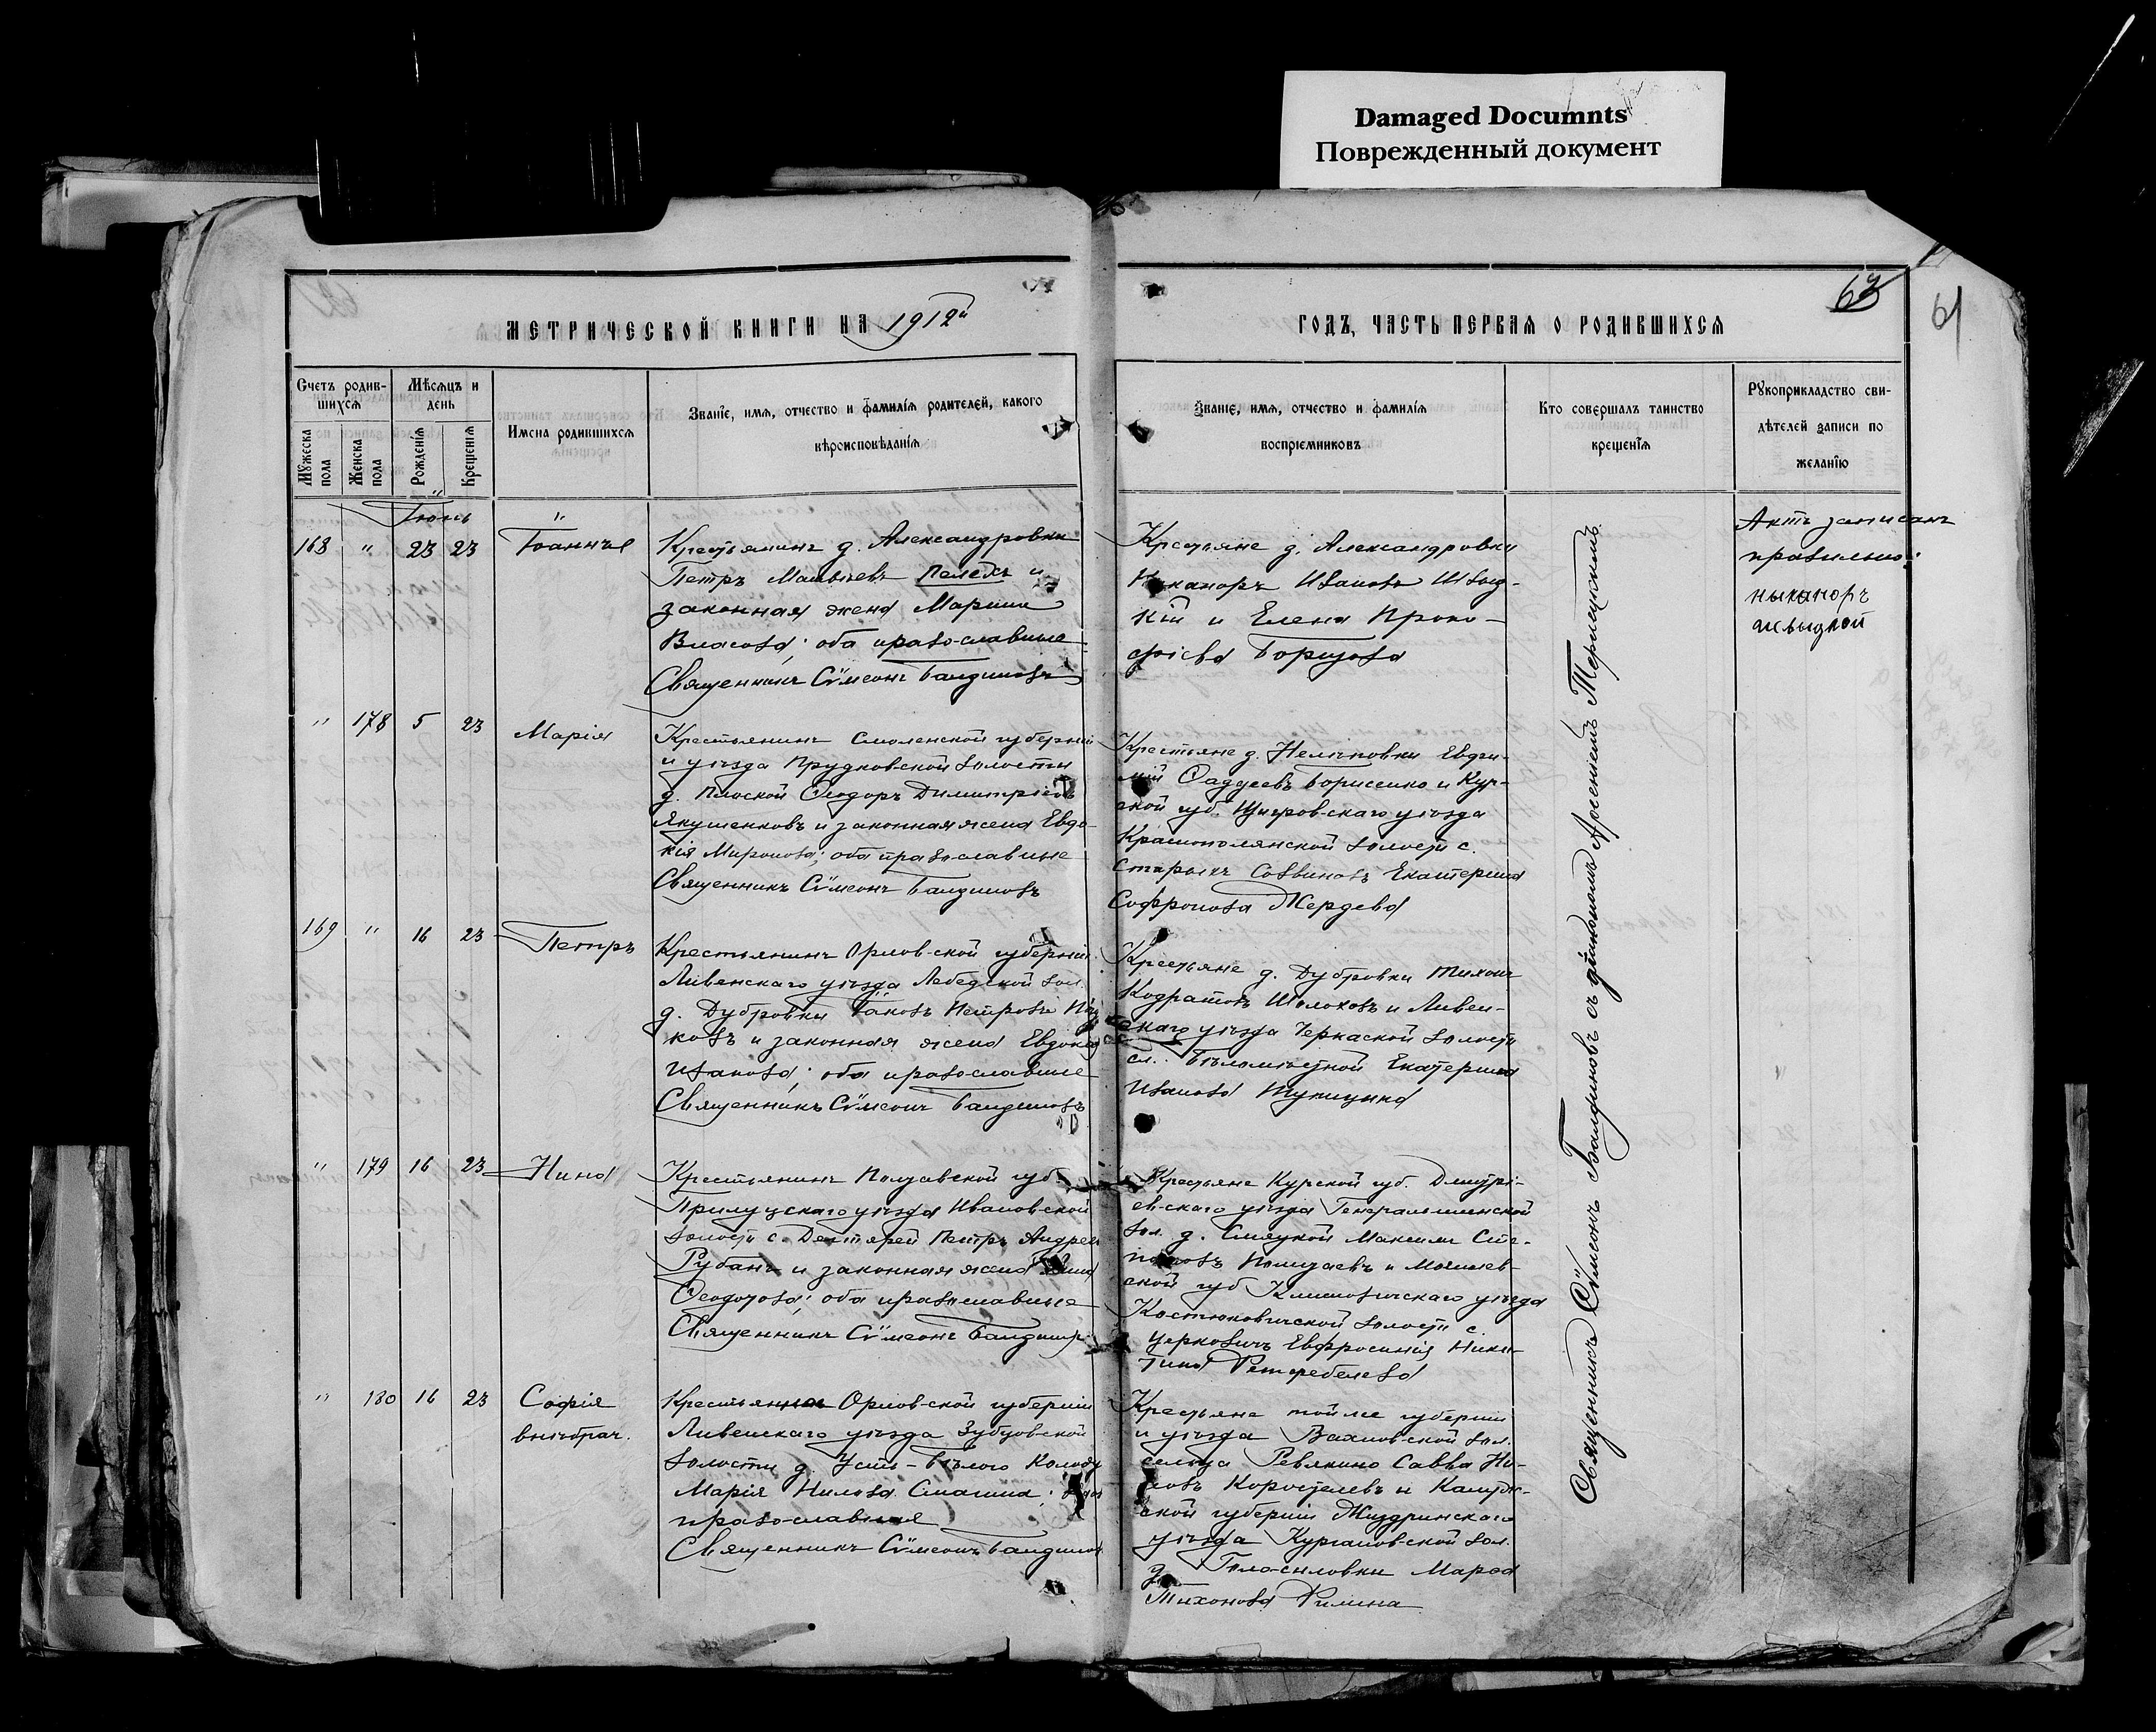 Damaged Documnts
Поврежденный документ
63
61
МЕТРИЧЕСКОЙ КНИГИ НА 1912й
ГОДЪ, ЧАСТЬ ПЕРВАЯ О РОДИВШИХСЯ
Счетъ родившихся
Мужеска пола
Женска пола
Мѣсяцъ и день
Рожденія
Крещенія
Имена родившихся
Званіе, имя, отчество и фамилія родителей, какого вѣроисповѣданія
Званіе, имя, отчество и фамилія воспріемниковъ
Кто совершалъ таинство крещенія
Рукоприкладство свидѣтелей записи по желанію
Іюнь
168 " 23 23
Іоаннъ
Крестьянинъ д. Александровки
Петръ Пелехъ и
законная жена Марина
Власова; оба православные
Священникъ Сѵмеонъ Бандиновъ
Крестьяне д. Александровки
Никаноръ Ивановъ Швыд-
кій и Елена Проко-
фіева Борщова
Актъ записанъ
правильно:
ныканоръ
швыдкой
" 178 5 23
Марія
Крестьянинъ Смоленской губерніи
и уѣзда Прудковской волости
д. Плоской Ѳеодоръ Димитріевъ
Якушенковъ и законная жена Евдо-
кія Миронова; оба православные
Священникъ Сѵмеонъ Бандиновъ
Крестьяне д. Евфи-
мій Ѳаддеевъ Борисенко и Кур-
ской губ. Щигровскаго уѣзда
Краснополянской волости с.
Старыхъ Саввиновъ Екатерина
Софронова Жердева
169 " 16 23
Петръ
Крестьянинъ Орловской губерніи
Ливенскаго уѣзда Лебедской вол.
д. Дубровки Іаковъ Петровъ
ковъ и законная жена Евдокія
Иванова; оба православные
Священникъ Сѵмеонъ Бандиновъ
Крестьяне д. Дубровки Тихонъ
Кодратовъ Шолоховъ и Ливен-
скаго уѣзда Черкаской волости
сл. Бѣломѣстной Екатерина
Иванова Тупицына
" 179 16 23
Нина
Крестьянинъ Полтавской губ.
Прилуцскаго уѣзда Ивановской
волости с. Дехтярей Петръ Андреевъ
Рубанъ и законная жена
Ѳеодотова; оба православные
Священникъ Сѵмеонъ Бандиновъ
Крестьяне Курской губ. Дмитрі-
евскаго уѣзда Генеральшинской
вол. д. Максимъ Сте-
пановъ Полуэевъ и Могилев-
ской губ Климовичскаго уѣзда
Костюковичской волости с.
Церковичъ Евфросинія Ники-
тина
" 180 16 23
Софія
внѣбрач.
Крестьянка Орловской губерніи
Ливенскаго уѣзда Зубцовской
волости д. Усть-Бѣлого Колодезя
Марія Нилова Смагина;
православная
Священникъ Сѵмеонъ Бандиновъ
Крестьяне той же губерніи
и уѣзда Вахновской вол.
сельца Ревякино Савва Ни-
ловъ Коростелевъ и Калуж-
ской губерніи Жиздринскаго
уѣзда Кургановской вол.
д. Голосиловки Марѳа
Тихонова Филина
Священникъ Сѵмеонъ Бандиновъ съ діакономъ Арсеніемъ Терлецкимъ